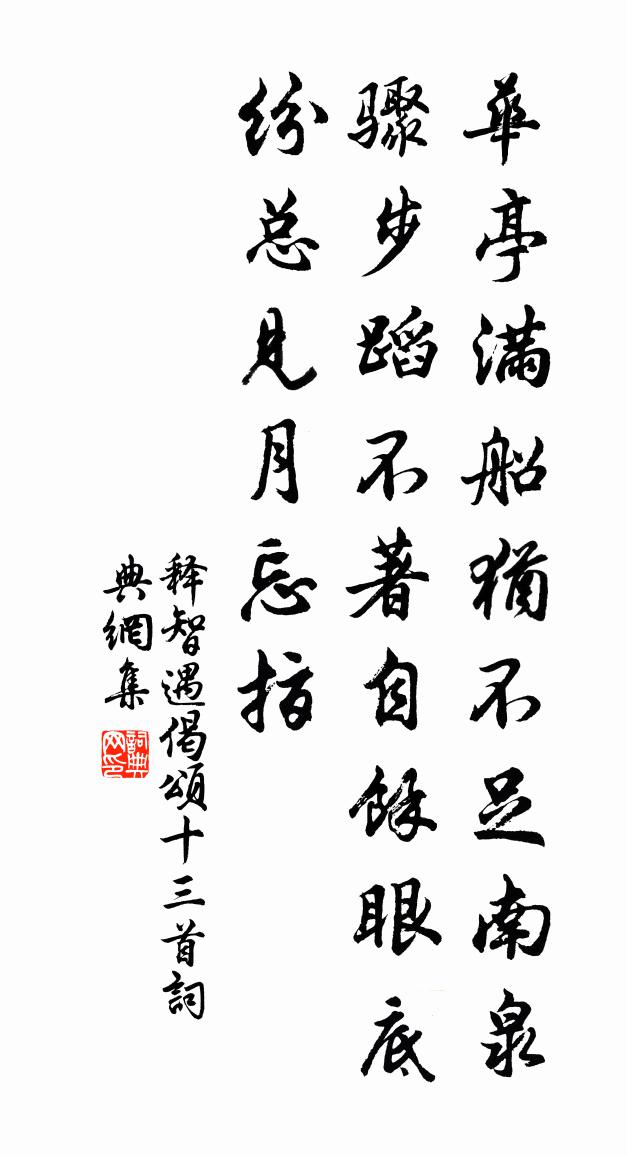 華亭滿船猶不足南泉
驟步蹈不著自餘眼底
纷总見月忘指
释智遇偈頌十三首詞
典網集
詞典网印